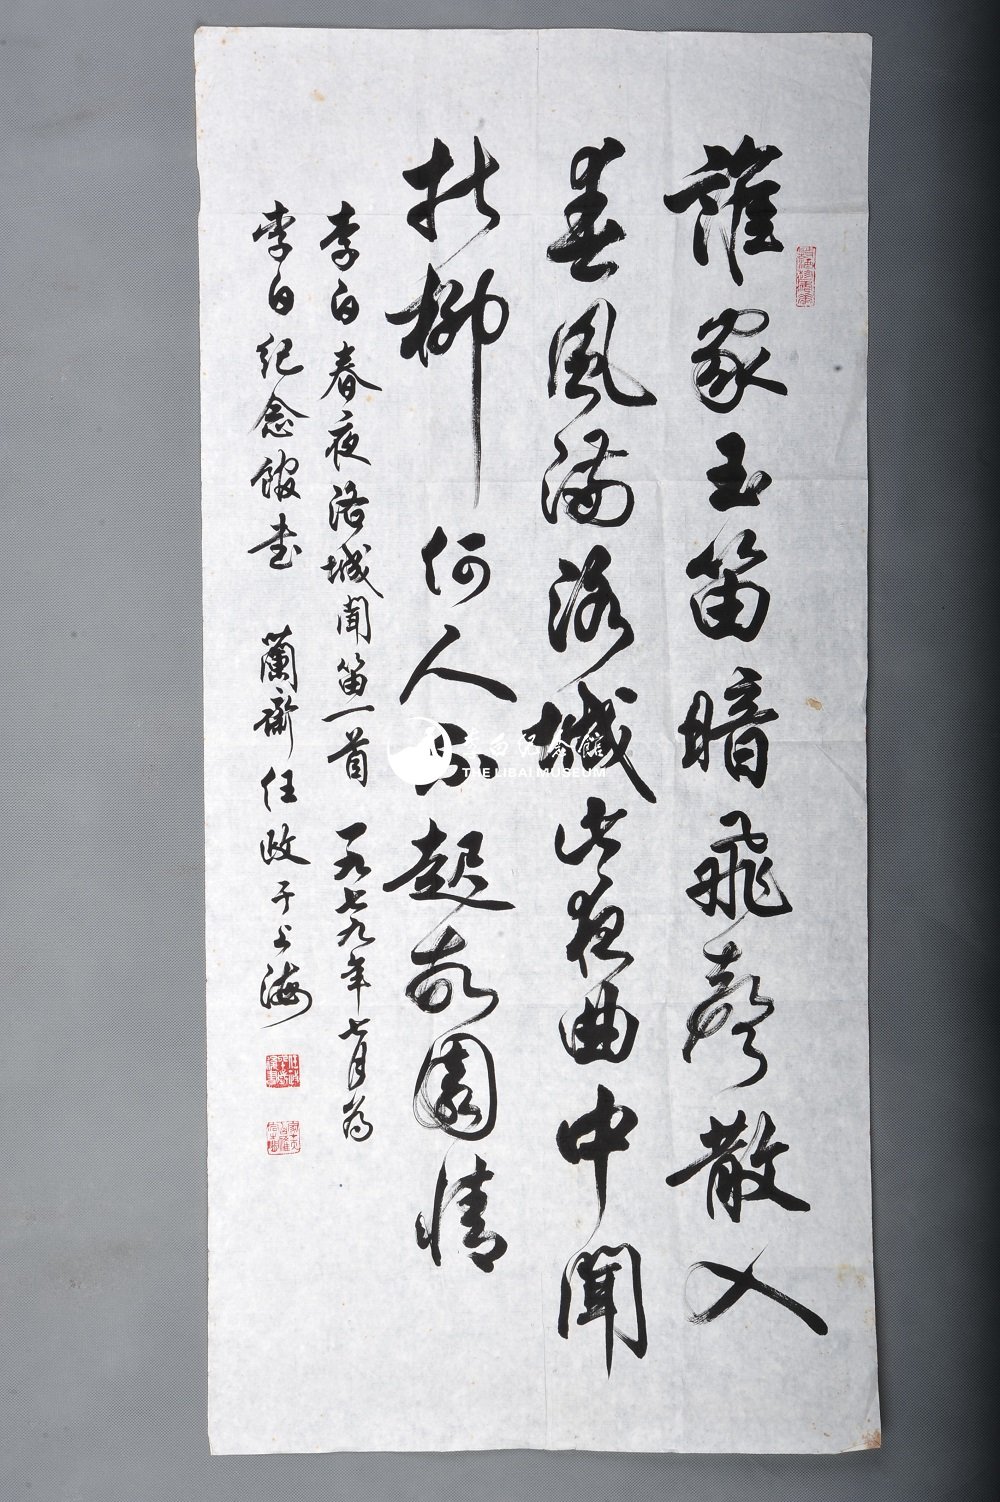 誰家玉笛暗飛聲散入
春風滿洛城此夜曲中聞
折柳何人不起故園情
李白春夜洛城聞笛一首 一九七九年七月為
李白纪念館书 蘭齋任政于上海
李白纪念館
THE LIBAI MUSEUM